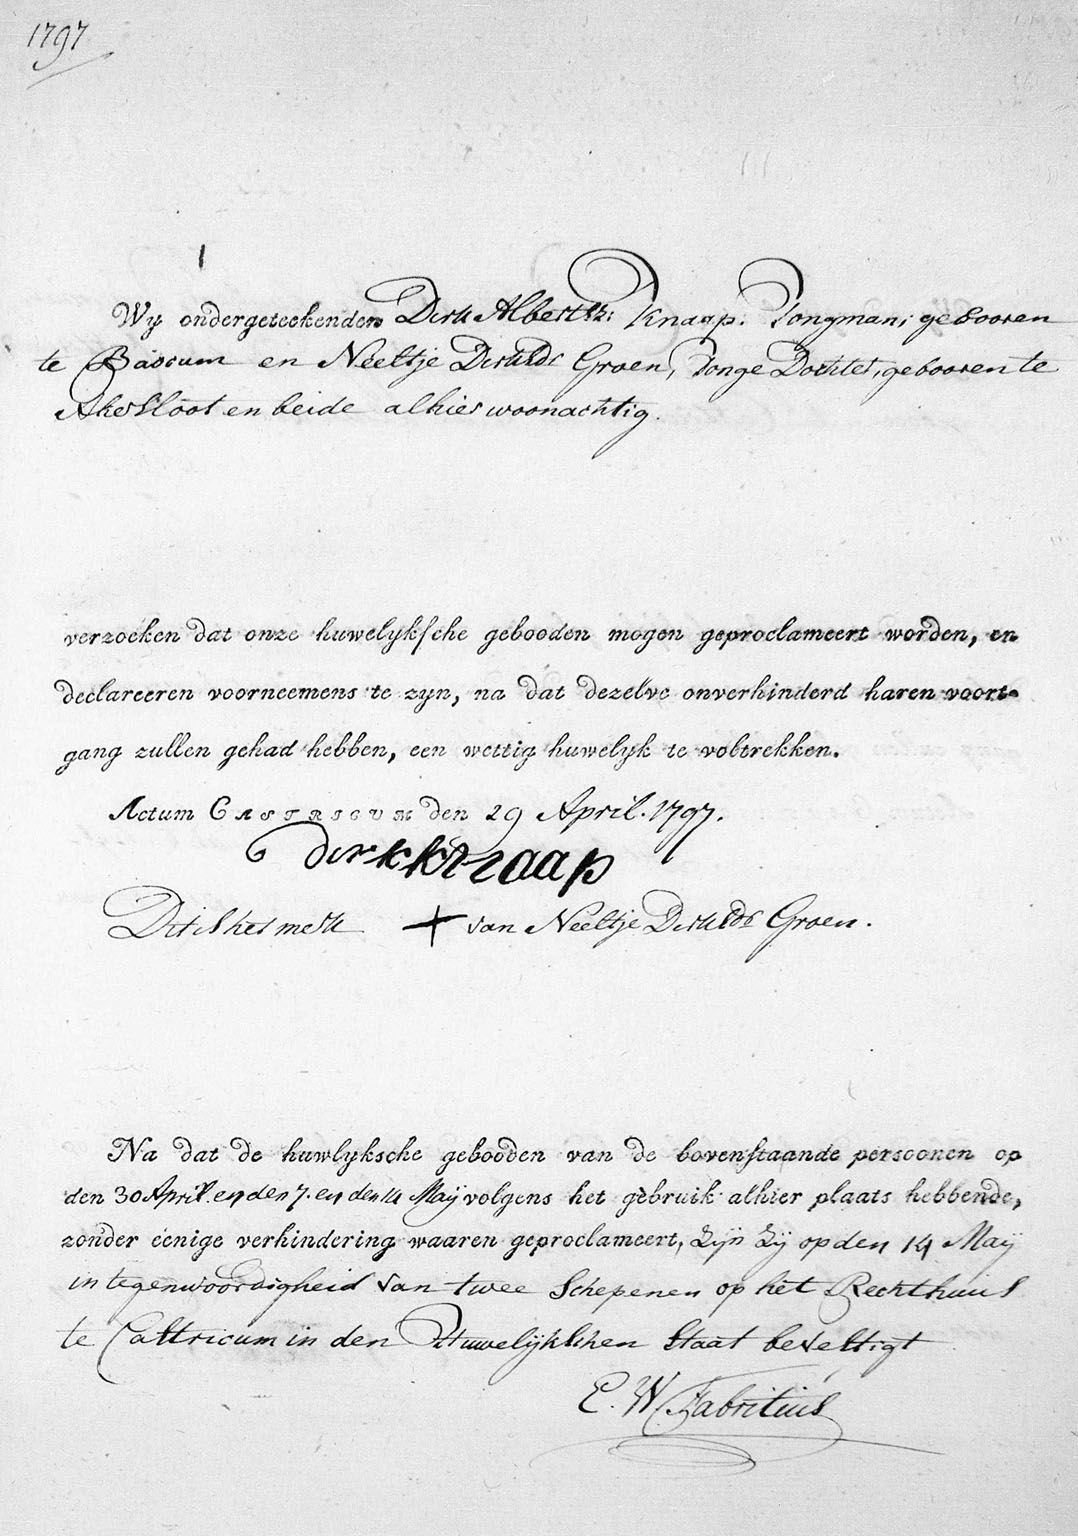 1797
1
Wy ondergeteekenden Dirk Albertsz: Knaap. Jongman, gebooren
te Baccum en Neeltje Dirksdr Groen, Jonge Dochter, gebooren te
Akersloot en beide alhier woonachtig.
verzoeken dat onze huwelyksche gebooden mogen geproclameert worden, en
declareeren voorneemens te zyn, na dat dezelve onverhinderd haren voort-
gang zullen gehad hebben, een wettig huwelyk te voltrekken.
Actum CASTRICUM den 29 April. 1797.
dirk knaap
Dit is het merk + van Neeltje Dirksdr Groen.
Na dat de huwlyksche gebooden van de bovenstaande persoonen op
den 30 April. en den 7. en den 14 Maÿ volgens het gebruik alhier plaats hebbende,
zonder eenige verhindering waaren geproclameert, zÿn zÿ op den 14 Maÿ
in tegenwoordigheid van twee Schepenen op het Rechthuis
te Castricum in den Huwelÿkschen Staat bevestigt
E. W. Fabritius